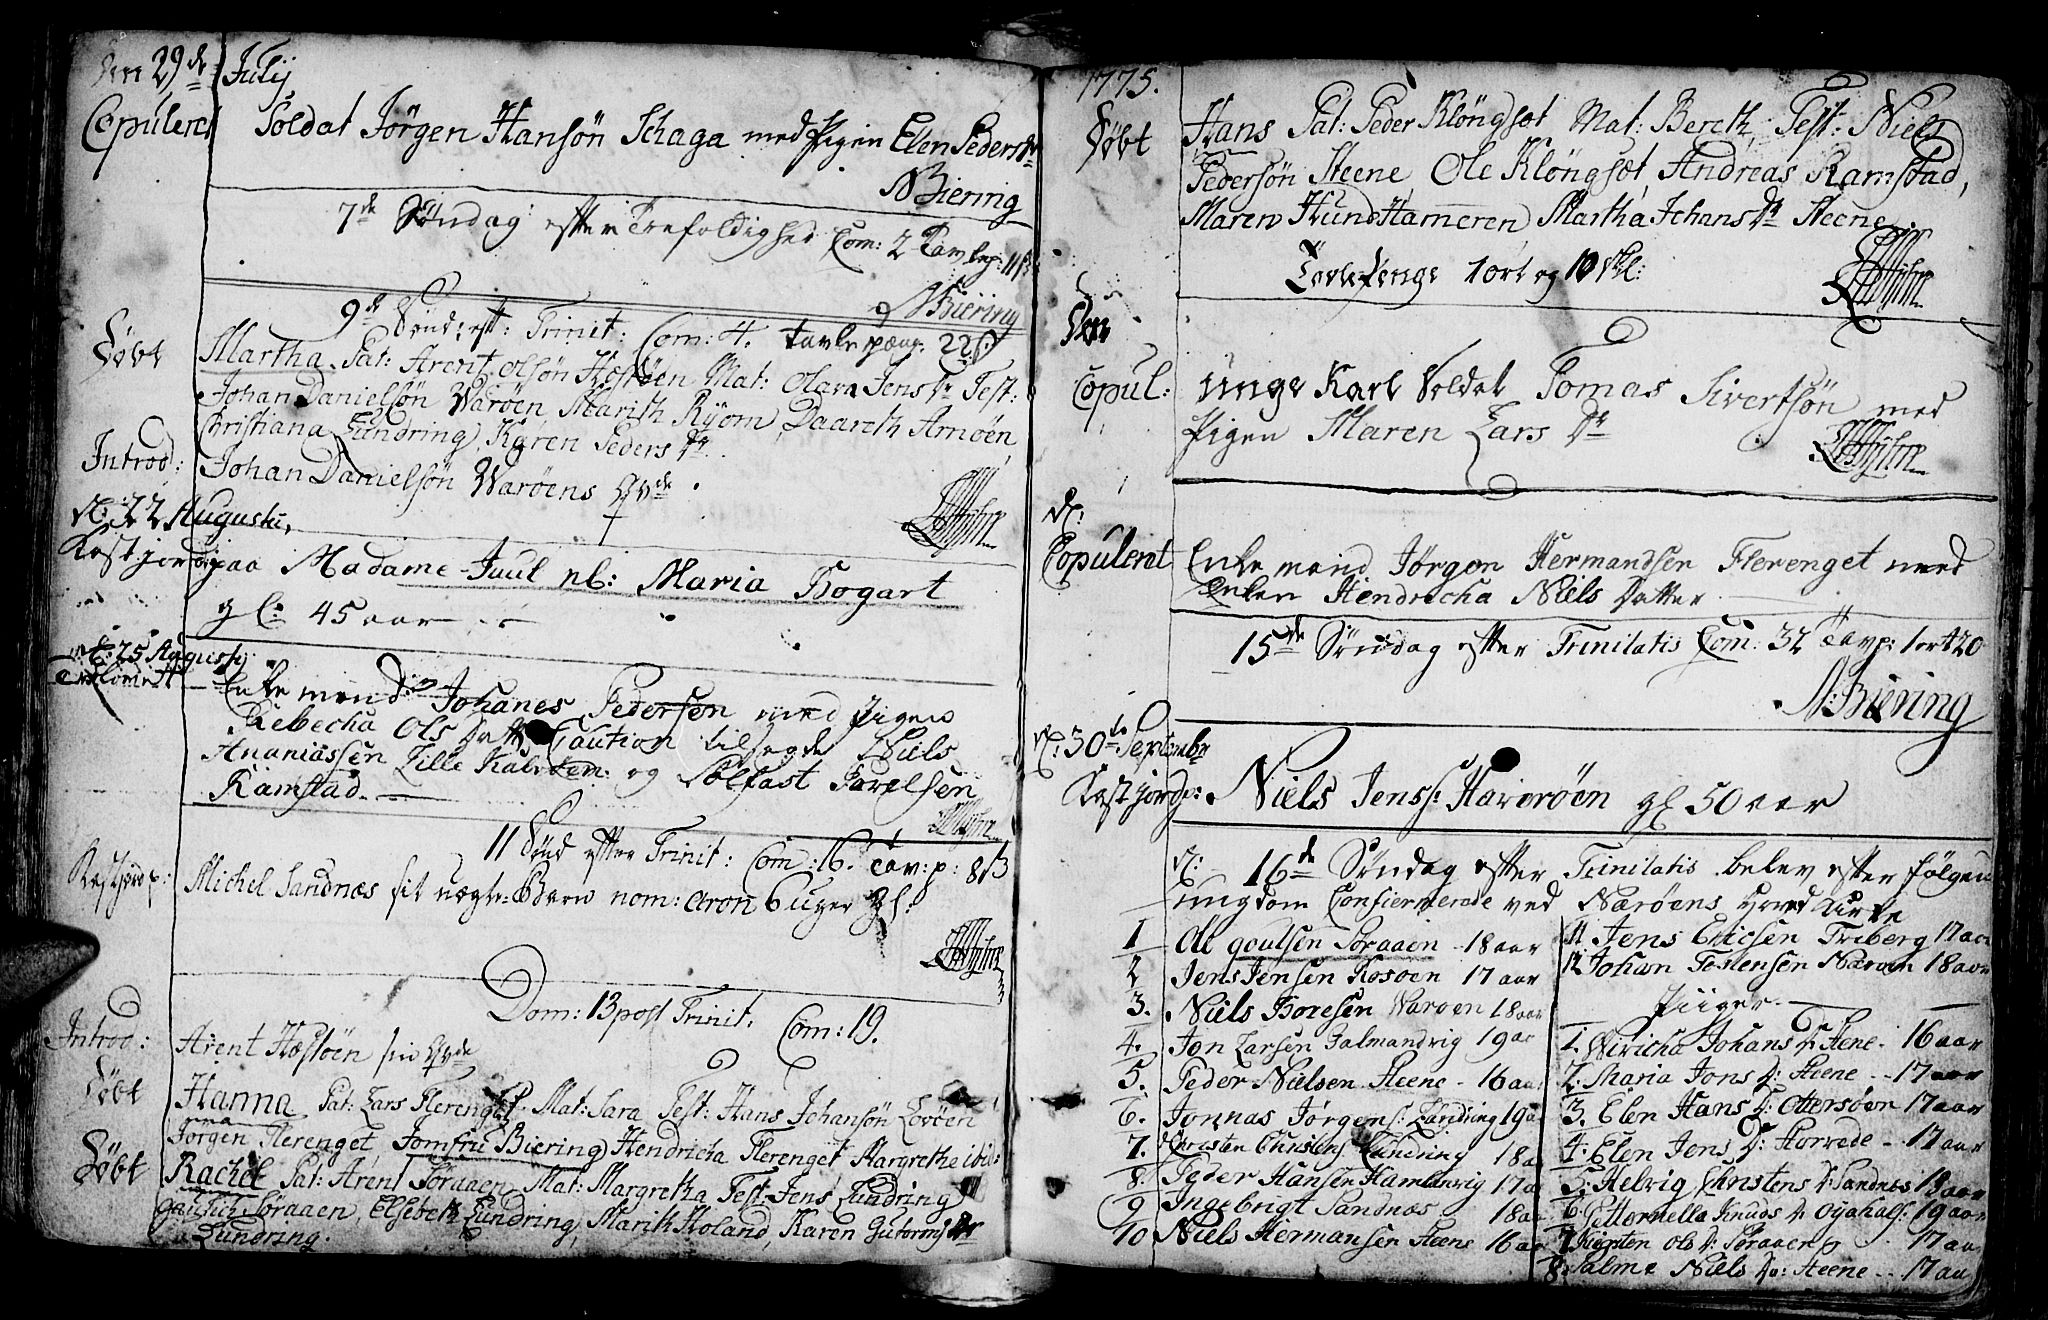 Den 29de Julij
Copuleret Soldat Jörgen Hansön Schaga med Pigen Elen Pedersdr
N Biering
7de Söndag efter Trefoldighed Com: 2 Tavlep: 11
N Biering
9de Sönd: eft: Trinit: Com: 4. tavlepæng. 22
Döbt Martha. Pat: Arent Olsön Hæstöen Mat: Olava Jensdr Test:
Johan Danielsön Waröen Marith Ryom, Daareth Arnöen,
Christiana Lundring, Karen Pedersdr.
Introd: Johan Danielsön Waröens Qvde.
d: 22 Augustij
Kast jord paa Madame Juul nl: Maria Bogart
gl: 45 aar
d: 25 Augustij
Trolovet Enkemand Johanes Pedersen med Pigen
Rebecha Ols Datt Caution tilsagde Niels
Ananiassen Lille Kalvöen og Polfast Pavelsen
Ramstad.
11 Sönd efter Trinit: Com: 16. Tav: p: 8
Kastjord p: Michel Sandnæs sit uægte Barn nom: Aron 6 uger gl:
Dom: 13 post Trinit. Com: 19.
Introd: Arent Hæstöen sin Qvde
Döbt Hanna Pat: Lars Flerenget. Mat: Sara Test: Hans Johansön Lövöen
Jörgen Flerenget, Jomfru Biering Hendricha Flerenget Margrethe ibid:
Döbt Rachel Pat: Arent Söraaen Mat: Margretha Test: Jens Lundring
Söraaen, Elsebeth Lundring, Marith Holand, Karen Gutormsdr
Lundring.
1775.
Döbt Hans Pat: Peder Klöngsæt Mat: Bereth, Test: Niels
Pedersön Steene Ole Klöngsæt, Andreas Ramstad,
Maren Hundhameren Martha Johansdr Steene
Tavlepenge 1 ort og 10 skl:
Den
Copul: unge Karl Soldat Tomas Sivertsön med
Pigen Maren Larsdr
d:
Copuleret Enkemand Jörgen Hermandsen Flerenget med
Enken Hendricha Niels Datter
15de Söndag efter Trinitatis Com: 32 Tavp: 1 ort 20
N: Biering
d: 30de Septembr
Kastjord p: Niels Jenss: Havrøen gl 50 aar
d: 16de Söndag efter Trinitatis blev efter fölgen
ungdom Confirmerede ved Næröens Hoved Kirke
1 Ole Poulsen Söraaen 18 aar
2 Jens Jensen Rosöen 17 aar
3. Niels Toresen Waroen 18 aar
4. Jon Larsen Kalmandvig 19 aa
5. Peder Nielsen Steene 16 aa
6. Jonnas Jörgens: Lundring 19 a
7. Christen Christens: Lundring 18 a
8. Peder Hansen Hamlanvig 17 a
9 Ingebrigt Sandnæs 18 aa
10 Niels Hermansen Steene 16 aa
11. Jens Ericsen Triberg 17 aa
12. Johan Testensen Næröen 18 aar
Piiger
1. Wiricha Johansdr: Steene 16 aar
2. Maria Jonsdr: Steene 17 aar
3. Elen Hansdr: Ottersöen 17 aar
4. Elen Jensdr: Horvede 17 aar
5. Helvig Christensdr: Sandnæs 19 aar
6. Pettornella Knudsdr: Oyahals: 19 aar
7 Kirsten Olsdr: Söraaen 17 aa
8. Malme Nielsdr: Steene 17 aa